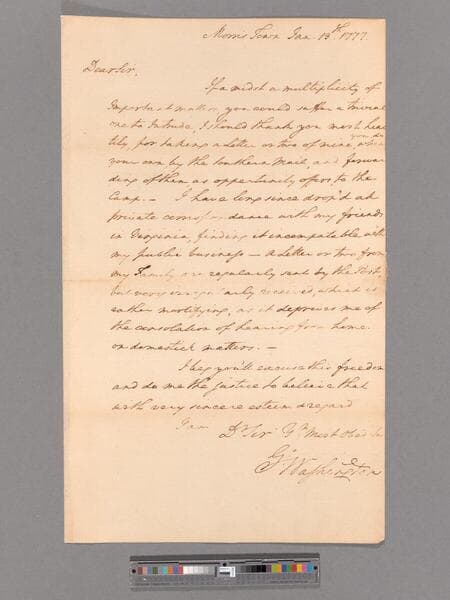 Morris Town Jan 13th 1777.
Dear Sir,
If amidst a multiplicity of
Important matter, you could suffer a trivial
one to Intrude, I should thank you most hear
tily, for taking a letter or two of mine, when
you do
your own by the Southern Mail, and forwar
ding of them as opportunity offers, to the
Camp. — I have long since drop'd all
private corrispondance with my friends
in Virginia, finding it incompatable with
my public business — A letter or two from
my Family are regularly sent by the Post,
but very irregularly received, which is
rather mortifying, as it deprives me of
the consolation of hearing from home
on domestick matters. —
I beg you'll excuse this freedom
and do me the justice to believe that
with very sincere esteem & regard
I am
Dr Sir Yr Most Obed
Go Washington